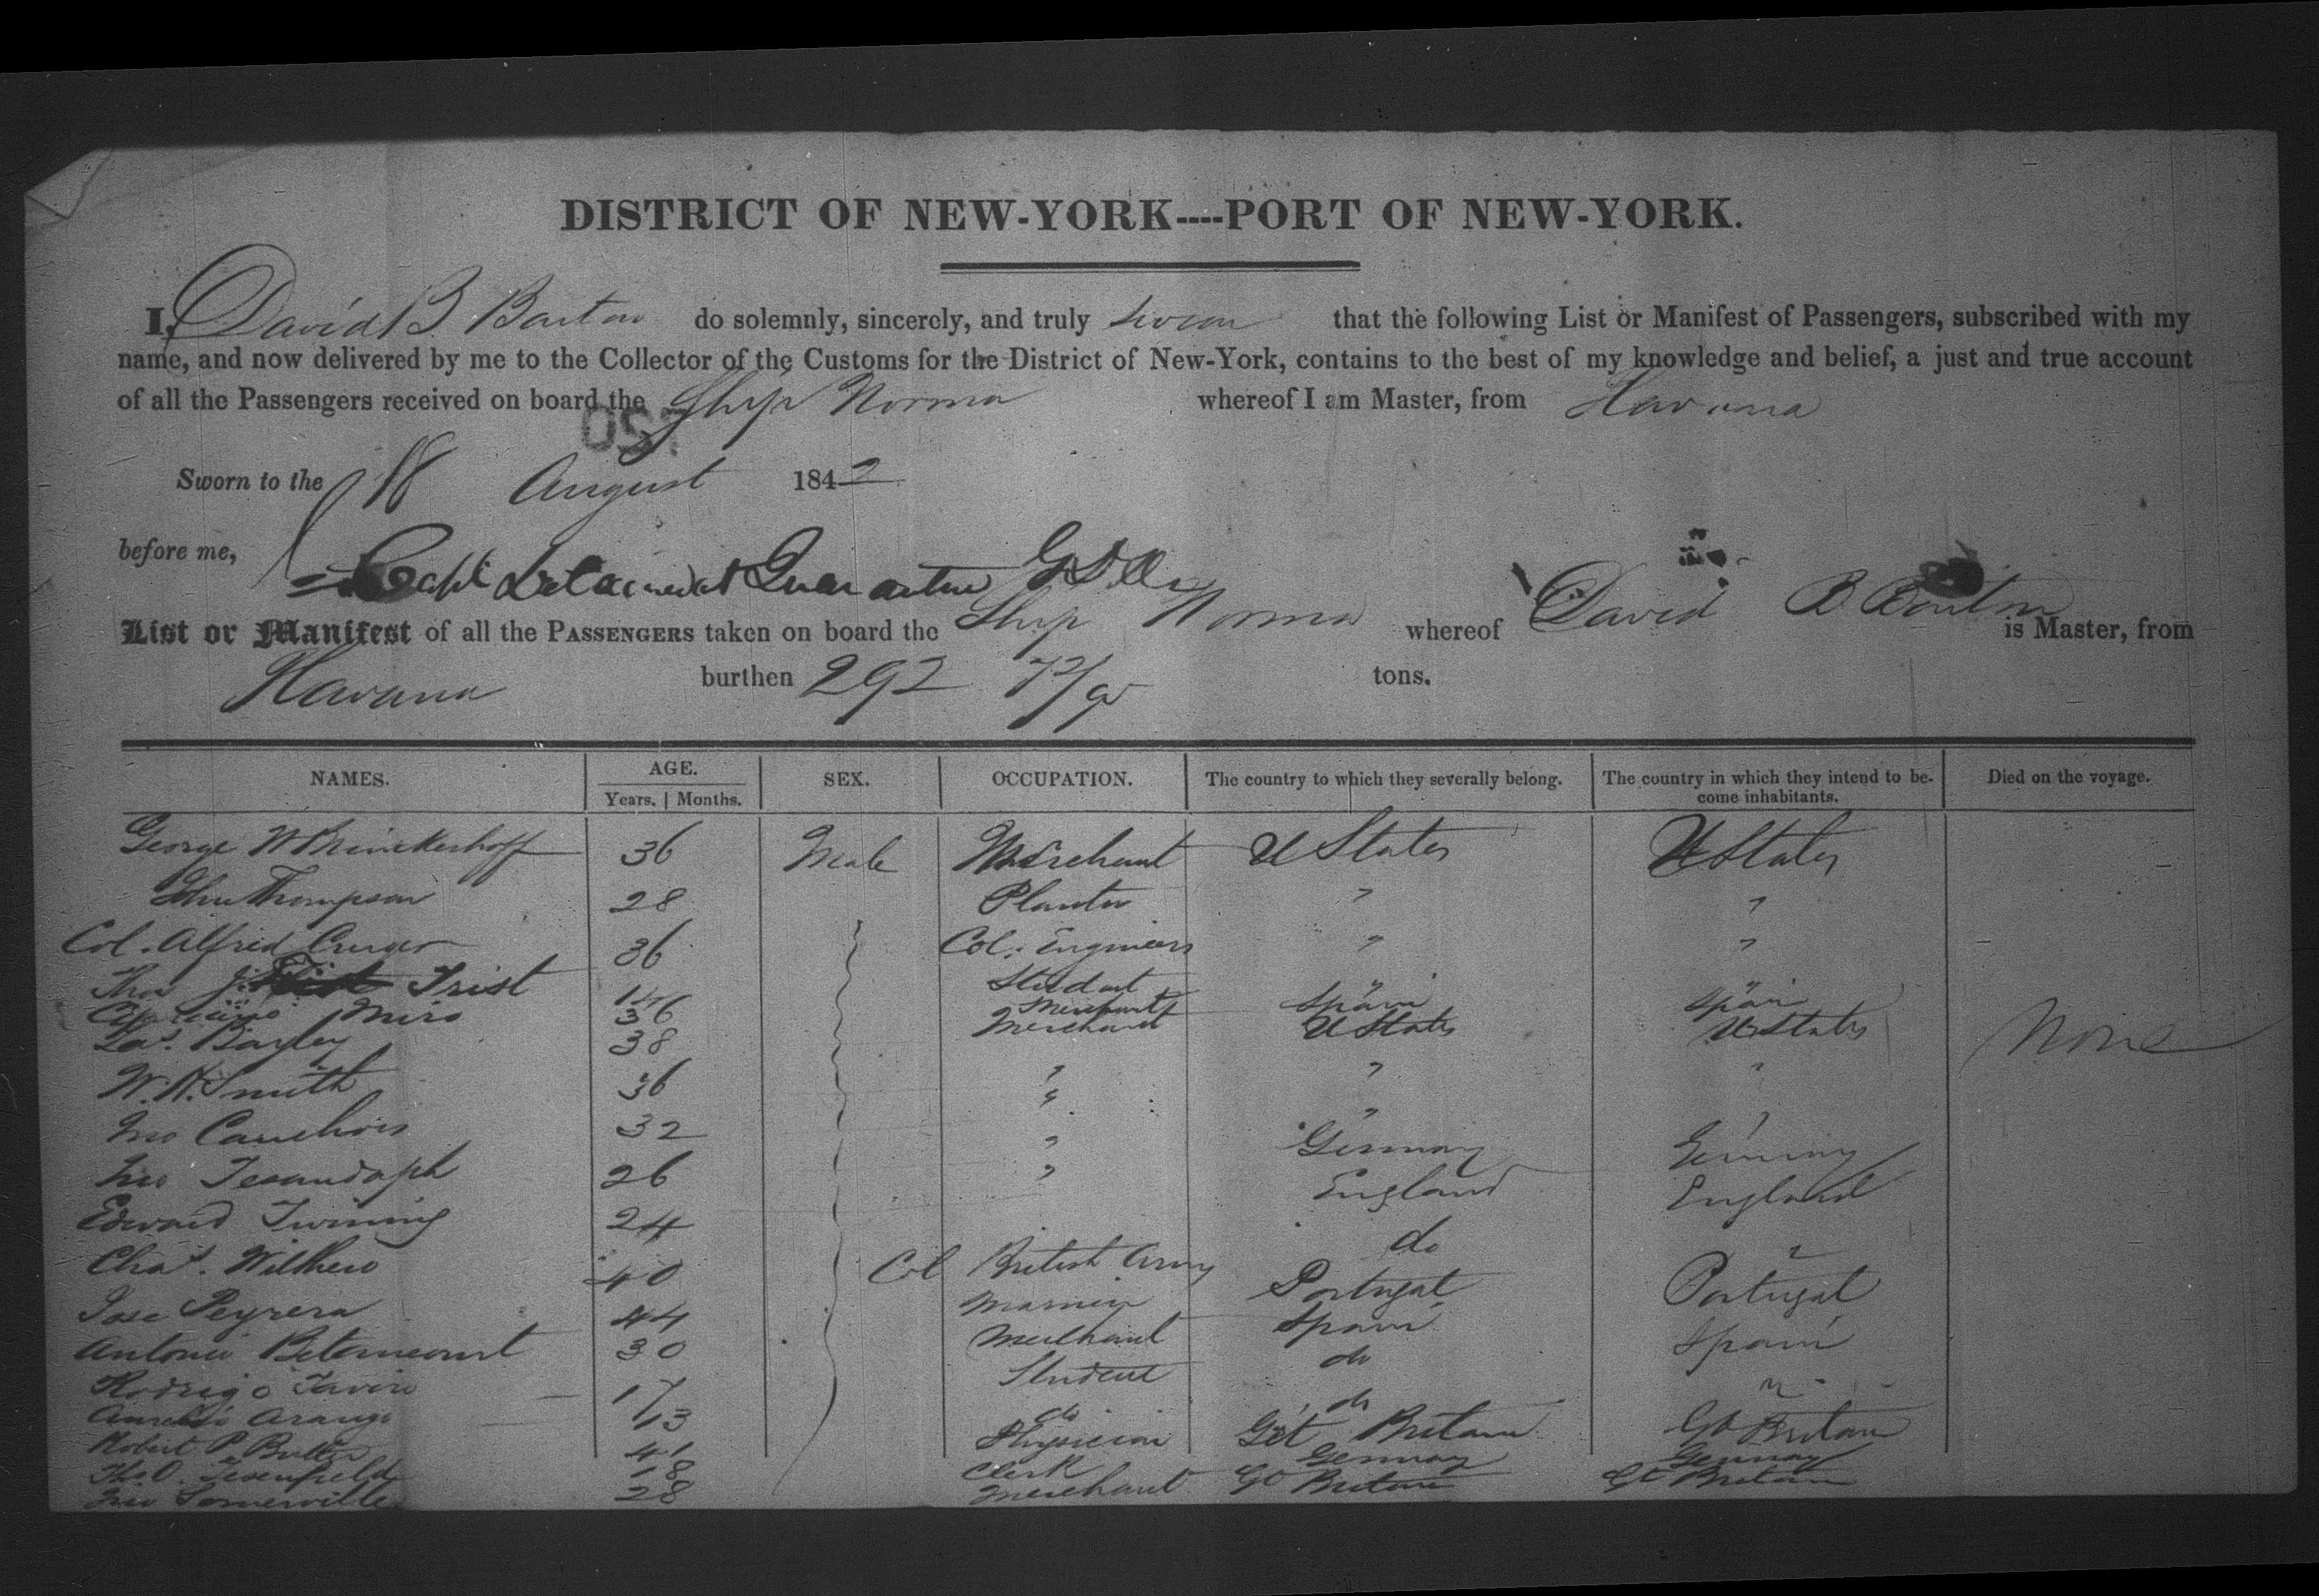 DISTRICT OF NEW-YORK----PORT OF NEW-YORK.
I, David B. Barton do solemnly, sincerely, and truly swear that the following List or Manifest of Passengers, subscribed with my
name, and now delivered by me to the Collector of the Customs for the District of New-York, contains to the best of my knowledge and belief, a just and true account
of all the Passengers received on board the Ship Norma whereof I am Master, from Havana
Sworn to the 18 August 1842
before me,
Capt Detained at Quarantine
List or Manifest of all the PASSENGERS taken on board the Ship Norma whereof David B Barton is Master, from
Havana burthen 292 72/95 tons.
NAMES. AGE. SEX. OCCUPATION. The country to which they severally belong. The country in which they intend to be- Died on the voyage.
Years. | Months. come inhabitants.
George W Brinckerhoff 36 Male Merchant U States U States
John Thompson 28 Planter " "
Col. Alfred Cruger 36 Col. Engineers " "
Thos J. Trist 14 Student " "
Miro 36 Merchant Spain Spain
Jas. Bayley 38 Merchant U States U States None
W. H. Smith 36 " " "
Jno 32 " " "
Jno 26 " Germany Germany
Edward Twining 24 " England England
Chas. 40 Col British Army do "
Jose Peyrera 44 Mariner Portugal Portugal
Antonio Betancourt 30 Merchant Spain Spain
Rodrigo 17 Student do "
Aurelio Arango 13 do do
Robert P. 41 Physician Gt Britain Gt Britain
18 Clerk Germany Germany
Jno Somerville 28 Merchant Gt Britain Gt Britain